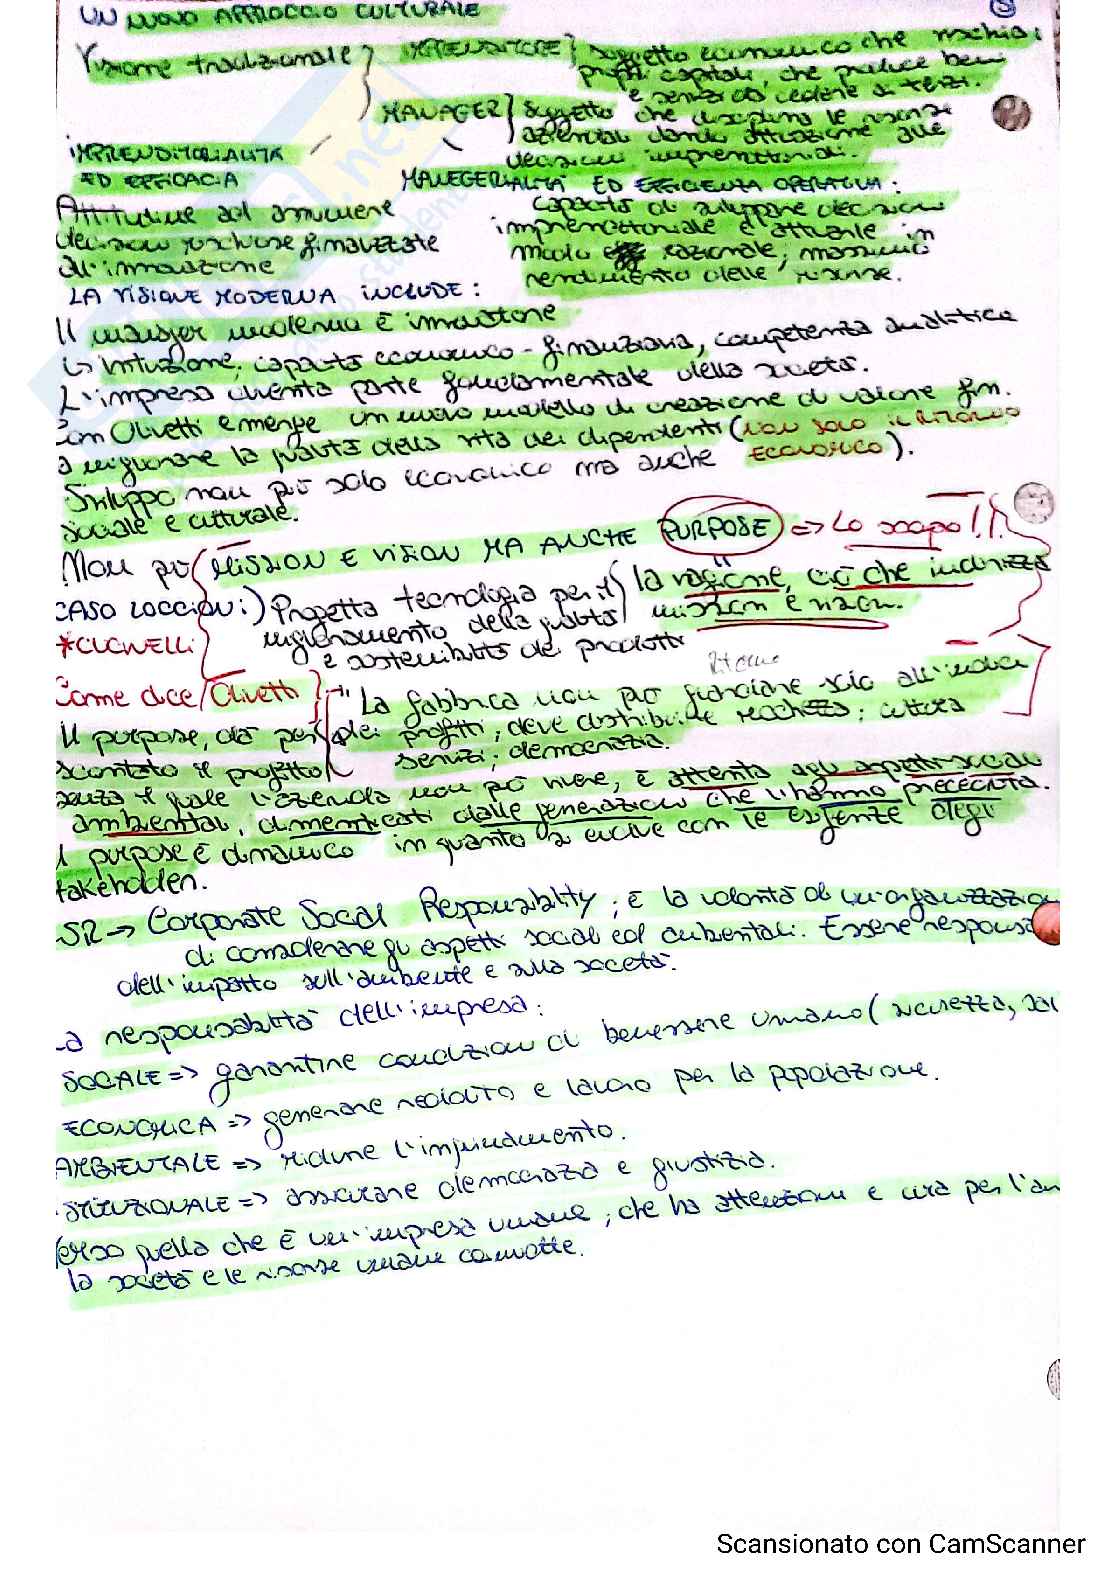 UN NUOVO APPROCCIO CULTURALE
5
Visione tradizionale
IMPRENDITORE
soggetto economico che rischia i
propri capitali, che produce beni
e servizi da cedere a terzi.
MANAGER
soggetto che disciplina le risorse
aziendali dando attuazione alle
decisioni imprenditoriali.
IMPRENDITORIALITÀ
ED EFFICACIA
Attitudine ad assumere
decisioni rischiose finalizzate
all'innovazione
MANEGERIALITÀ ED EFFICIENZA OPERATIVA:
capacità di sviluppare decisioni
imprenditoriale e attuarle in
modo razionale; massimo
rendimento delle risorse.
LA VISIONE MODERNA INCLUDE:
Il manager moderno è innovatore
↳ Intuizione, capacità economico-finanziaria, competenza analitica
L'impresa diventa parte fondamentale della società.
Con Olivetti emerge un nuovo modello di creazione di valore fin.
a migliorare la qualità della vita dei dipendenti (NON SOLO IL RITORNO
ECONOMICO).
Sviluppo non più solo economico ma anche
sociale e culturale.
Non più MISSION E VISION MA ANCHE PURPOSE => Lo scopo!!
"
la ragione, ciò che indirizza
mission e vision.
CASO LOCCIONI:) Progetta tecnologia per il
miglioramento della qualità
e sostenibilità dei prodotti
*CUCINELLI
Come dice Olivetti
"La fabbrica non può guardare solo all'indice
dei profitti, deve distribuire ricchezza, cultura
servizi, democrazia.
Il purpose, dà per
scontato il profitto
senza il quale l'azienda non può vivere, è attento agli aspetti sociali
ambientali, dimenticati dalle generazioni che l'hanno preceduta.
l purpose è dinamico in quanto si evolve con le esigenze degli
takeholder.
SR => Corporate Social Responsability; è la volontà di un'organizzazion
di considerare gli aspetti sociali ed ambientali. Essere responsa
dell'impatto sull'ambiente e sulla società.
La responsabilità dell'impresa:
SOCIALE => garantire condizioni di benessere umano (sicurezza, sal
ECONOMICA => generare reddito e lavoro per la popolazione.
AMBIENTALE => ridurre l'inquinamento.
ISTITUZIONALE => assicurare democrazia e giustizia.
Verso quella che è un'impresa umana; che ha attenzione e cura per l'am
la società e le risorse umane coinvolte.
Scansionato con CamScanner